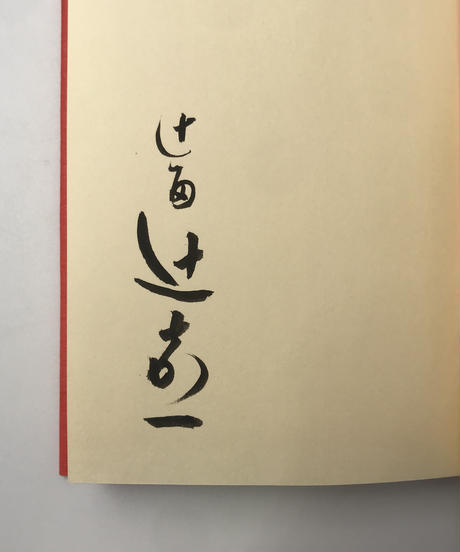 辻留 辻嘉一